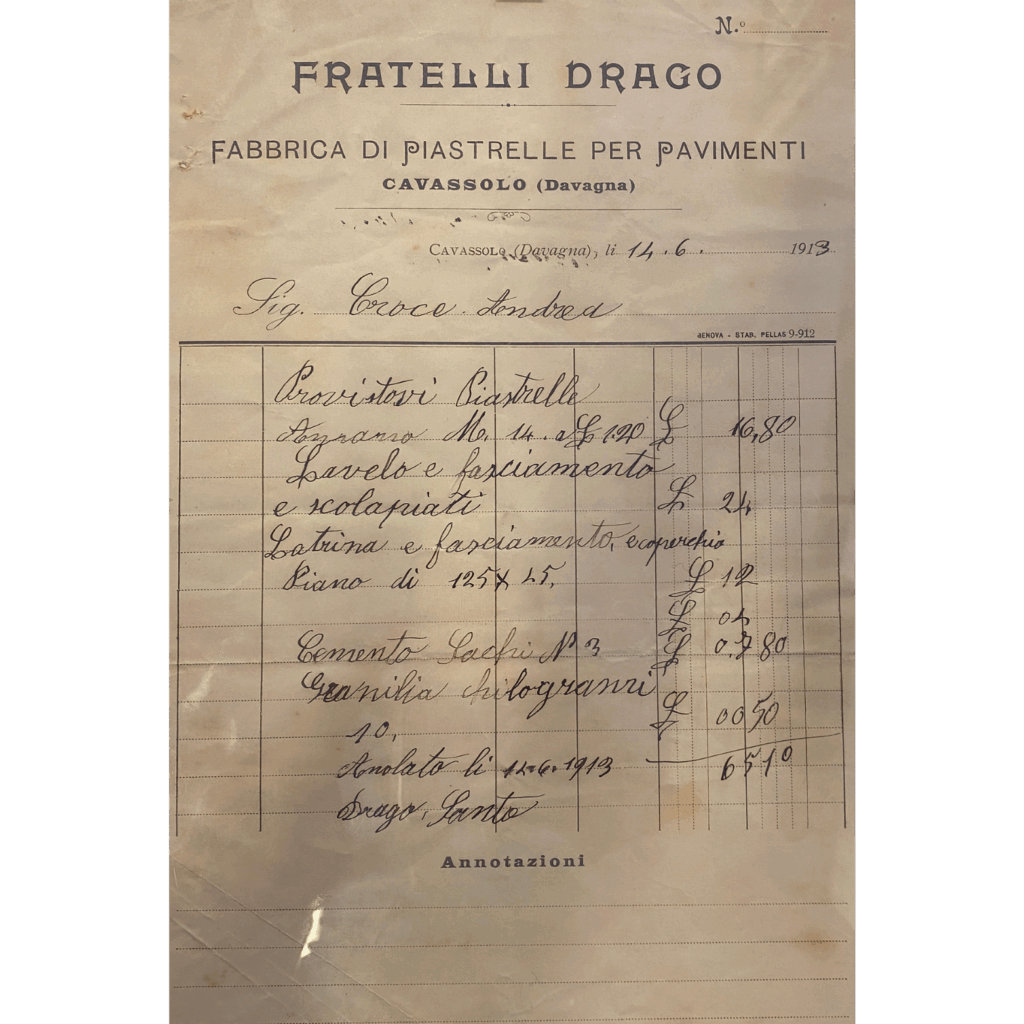 N.º
FRATELLI DRAGO
FABBRICA DI PIASTRELLE PER PAVIMENTI
CAVASSOLO (Davagna)
CAVASSOLO (Davagna), li 14.6. 1913
Sig. Croce Andrea
GENOVA - STAB. PELLAS 9-912
Provistovi Piastrelle
M. 14. a £ 1.20 £ 16,80
Lavelo e fasciamento
e scolapiati £ 24
Latrina e fasciamento, e coperchio
Piano di 125 x 45. £ 12
£ 04
Cemento Sachi N 3 £ 0.7 80
Granilia chilogrami £ 00 50
10,
li 14.6.1913 6510
Drago, Santo
Annotazioni